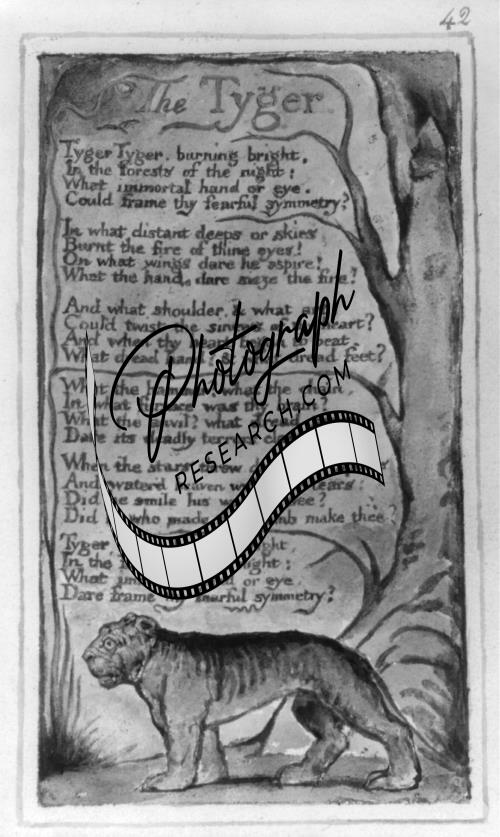 42
The Tyger
Tyger Tyger, burning bright,
In the forests of the night;
What immortal hand or eye.
Could frame thy fearful symmetry?
In what distant deeps or skies
Burnt the fire of thine eyes!
On what wings dare he aspire!
What the hand, dare sieze the fire?
And what shoulder, & what
Could twist the sinews of heart?
And when thy heart to beat,
What dread hand dread feet?
What the hammer what the chain,
In what was thy
What the anvil? what
Dare its deadly terrors
When the stars threw
And water'd heaven tears:
Did he smile his
Did who made make thee?
Tyger
In the night:
What or eye.
Dare frame thy fearful symmetry?
Photograph
RESEARCH.COM